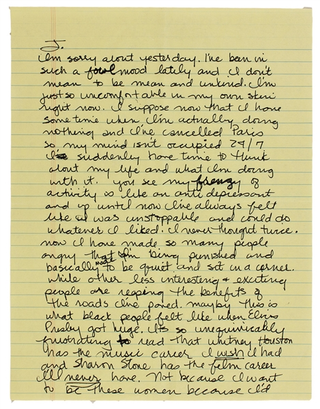 J.
I'm sorry about yesterday. I've been in
such a foul mood lately and I don't
mean to be mean and unkind. I'm
just so uncomfortable in my own skin
right now. I suppose now that I have
some time when I'm actually doing
nothing and I've cancelled Paris
so my mind isn't occupied 24/7
I suddenly have time to think
about my life and what I'm doing
with it. you see my frenzy of
activity is like an anti depressant
and up until now I've always felt
like I was unstoppable and could do
whatever I liked. I never thought twice.
now I have made so many people
angry that I'm being punished and
basically made to be quiet and sit in a corner
while other less interesting & exciting
people are reaping the benefits of
the roads I've paved. maybe this is
what black people felt like when Elvis
Presley got huge. It's so unequivocably
frustrating to read that Whitney Houston
has the music career I wish I had
and Sharon Stone has the film career
I'll never have. Not because I want
to be these women because I'd